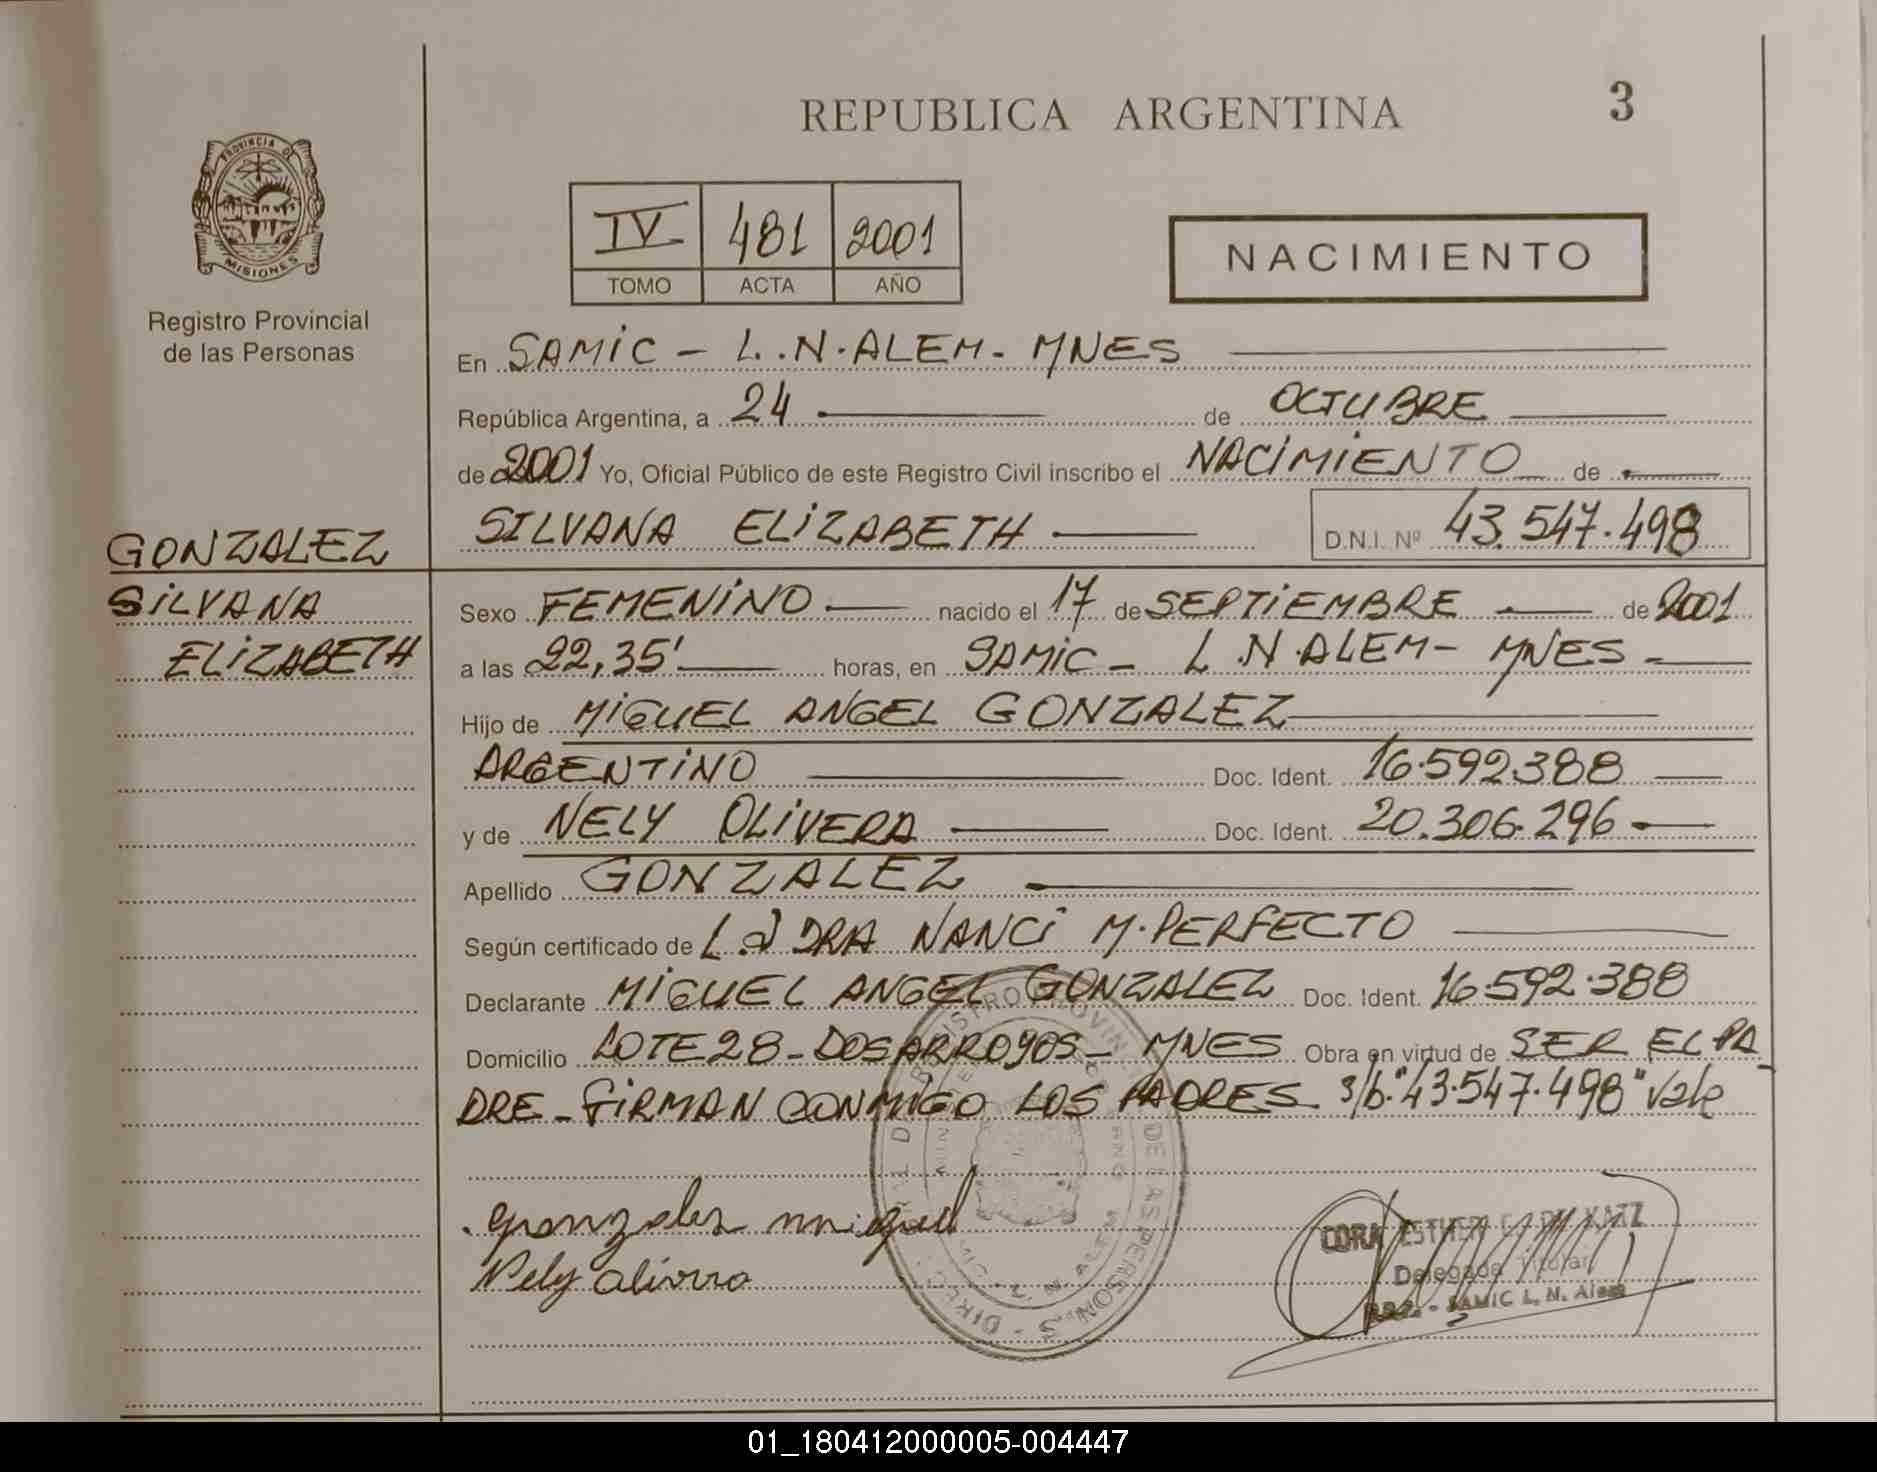 REPUBLICA ARGENTINA
3
PROVINCIA DE
MISIONES
Registro Provincial
de las Personas
IV 481 2001
TOMO ACTA AÑO
NACIMIENTO
En SAMIC - L.N.ALEM- MNES
República Argentina, a 24 de OCTUBRE
de 2001 Yo, Oficial Público de este Registro Civil inscribo el NACIMIENTO de
SILVANA ELIZABETH D.N.I. Nº 43.547.498
GONZALEZ
SILVANA
ELIZABETH
Sexo FEMENINO nacido el 17 de SEPTIEMBRE de 2001
a las 22,35' horas, en SAMIC - L.N.ALEM- MNES -
Hijo de MIGUEL ANGEL GONZALEZ
ARGENTINO Doc. Ident. 16.592.388
y de NELY OLIVERA Doc. Ident. 20.306.296
Apellido GONZALEZ
Según certificado de DRA NANCI M. PERFECTO
Declarante MIGUEL ANGEL GONZALEZ Doc. Ident. 16.592.388
Domicilio LOTE 28 - DOS ARROYOS - MNES Obra en virtud de SER EL PA
DRE - FIRMAN CONMIGO LOS PADRES S/b."43.547.498" Vale
gonzalez miguel
Nely Olivera
CORA ESTHER DE KATZ
Delegada Titular
SAMIC L. N. Alem
01_180412000005-004447